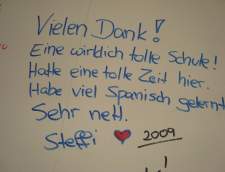 Vielen Dank!
Eine wirklich tolle Schule!
Hatte eine tolle Zeit hier.
Habe viel Spanisch gelernt
Sehr nett.
Steffi ♥ 2009